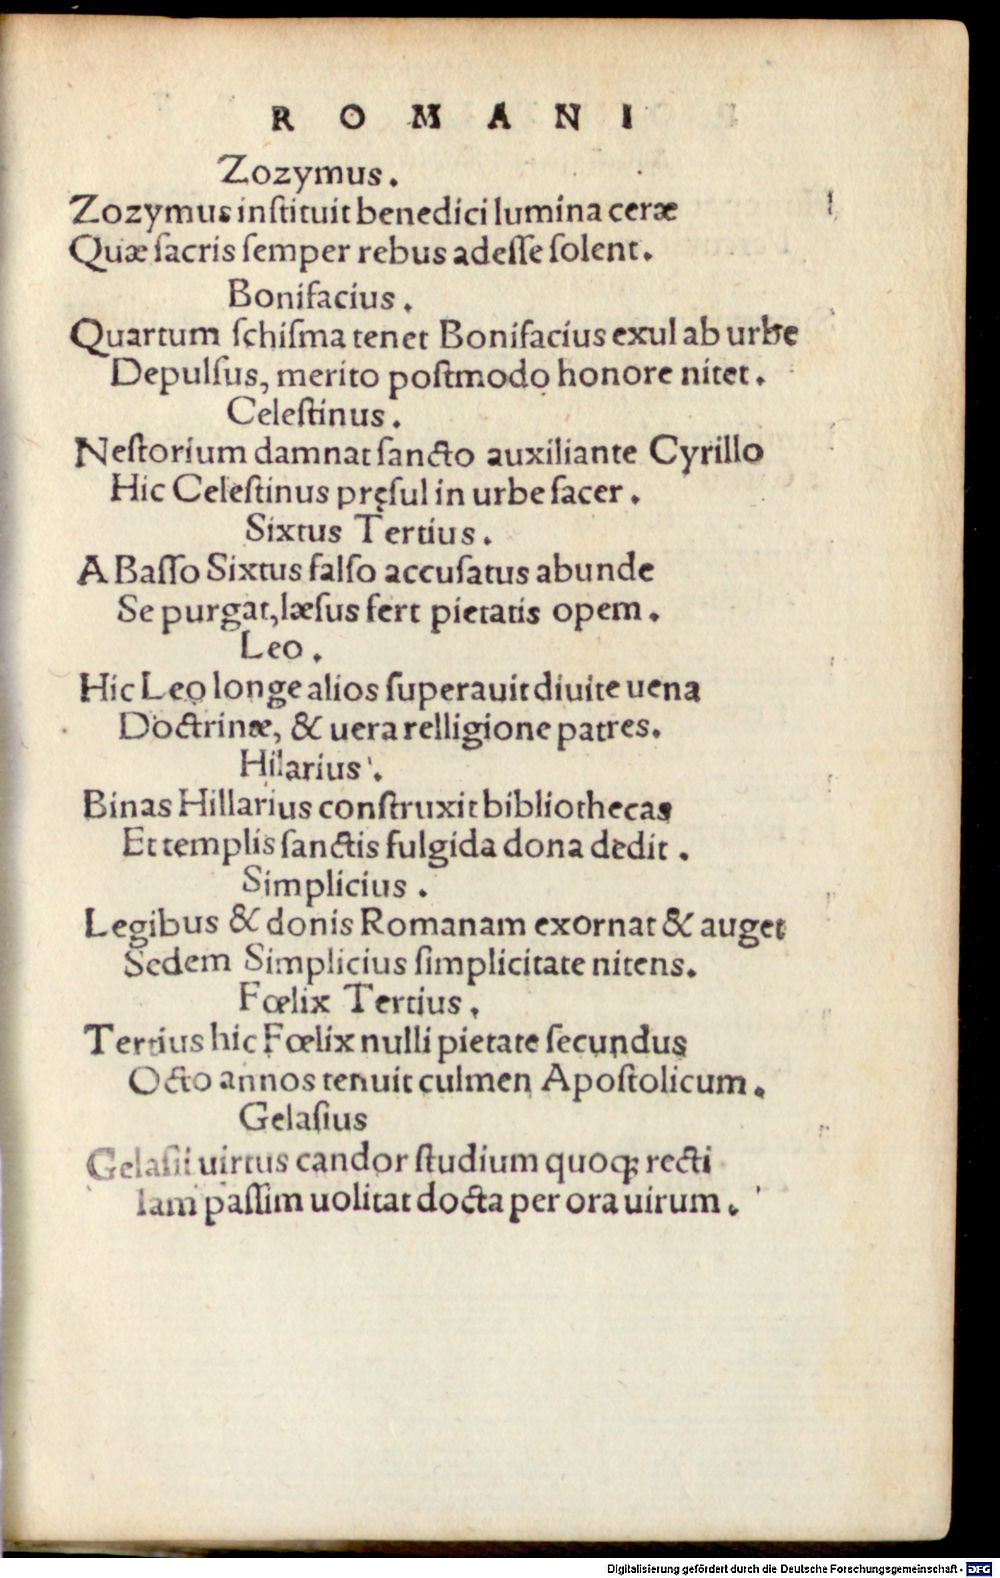 ROMANI
Zozymus.
Zozymus inſtituit benedici lumina ceræ
Quæ ſacris ſemper rebus adeſſe ſolent.
Bonifacius.
Quartum ſchiſma tenet Bonifacius exul ab urbe
Depulſus, merito poſtmodo honore nitet.
Celeſtinus.
Neſtorium damnat ſancto auxiliante Cyrillo
Hic Celeſtinus pręſul in urbe ſacer.
Sixtus Tertius.
A Baſſo Sixtus falſo accuſatus abunde
Se purgat, læſus fert pietatis opem.
Leo.
Hic Leo longe alios ſuperauit diuite uena
Doctrinæ, & uera relligione patres.
Hilarius.
Binas Hillarius conſtruxit bibliothecas
Et templis ſanctis fulgida dona dedit.
Simplicius.
Legibus & donis Romanam exornat & auget
Sedem Simplicius ſimplicitate nitens.
Fœlix Tertius.
Tertius hic Fœlix nulli pietate ſecundus
Octo annos tenuit culmen Apoſtolicum.
Gelaſius
Gelaſii uirtus candor ſtudium quoq; recti
Iam paſſim uolitat docta per ora uirum.
Digitalisierung gefördert durch die Deutsche Forschungsgemeinschaft - DFG